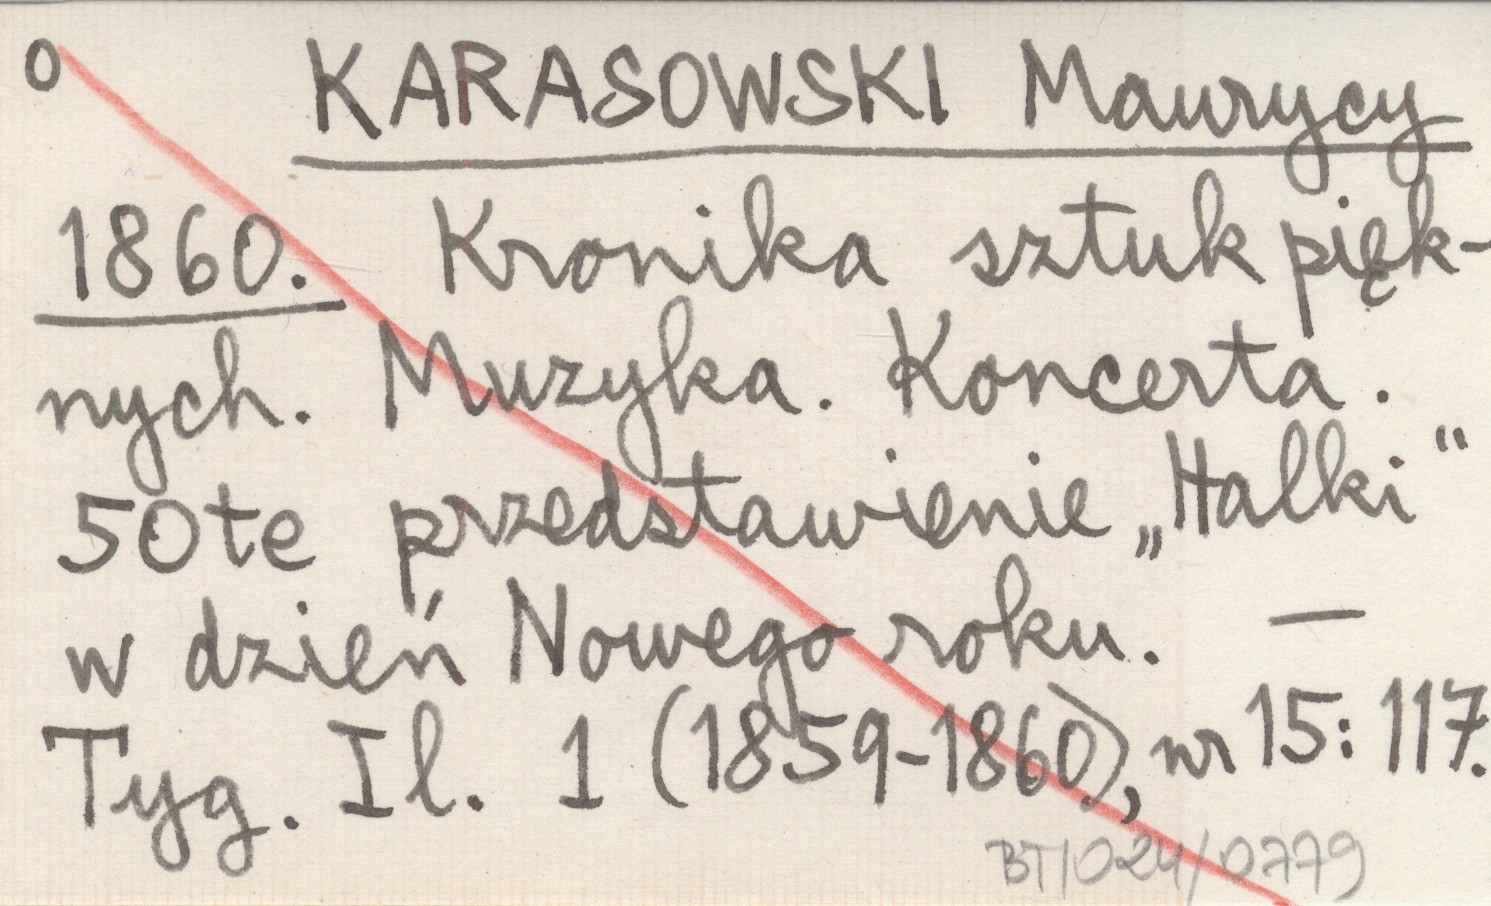 o KARASOWSKI Maurycy
1860. Kronika sztuk pięk-
nych. Muzyka. Koncerta.
50te przedstawienie „Halki“
w dzień Nowego roku. —
Tyg. Il. 1 (1859-1860), nr 15: 117.
BT/024/0779